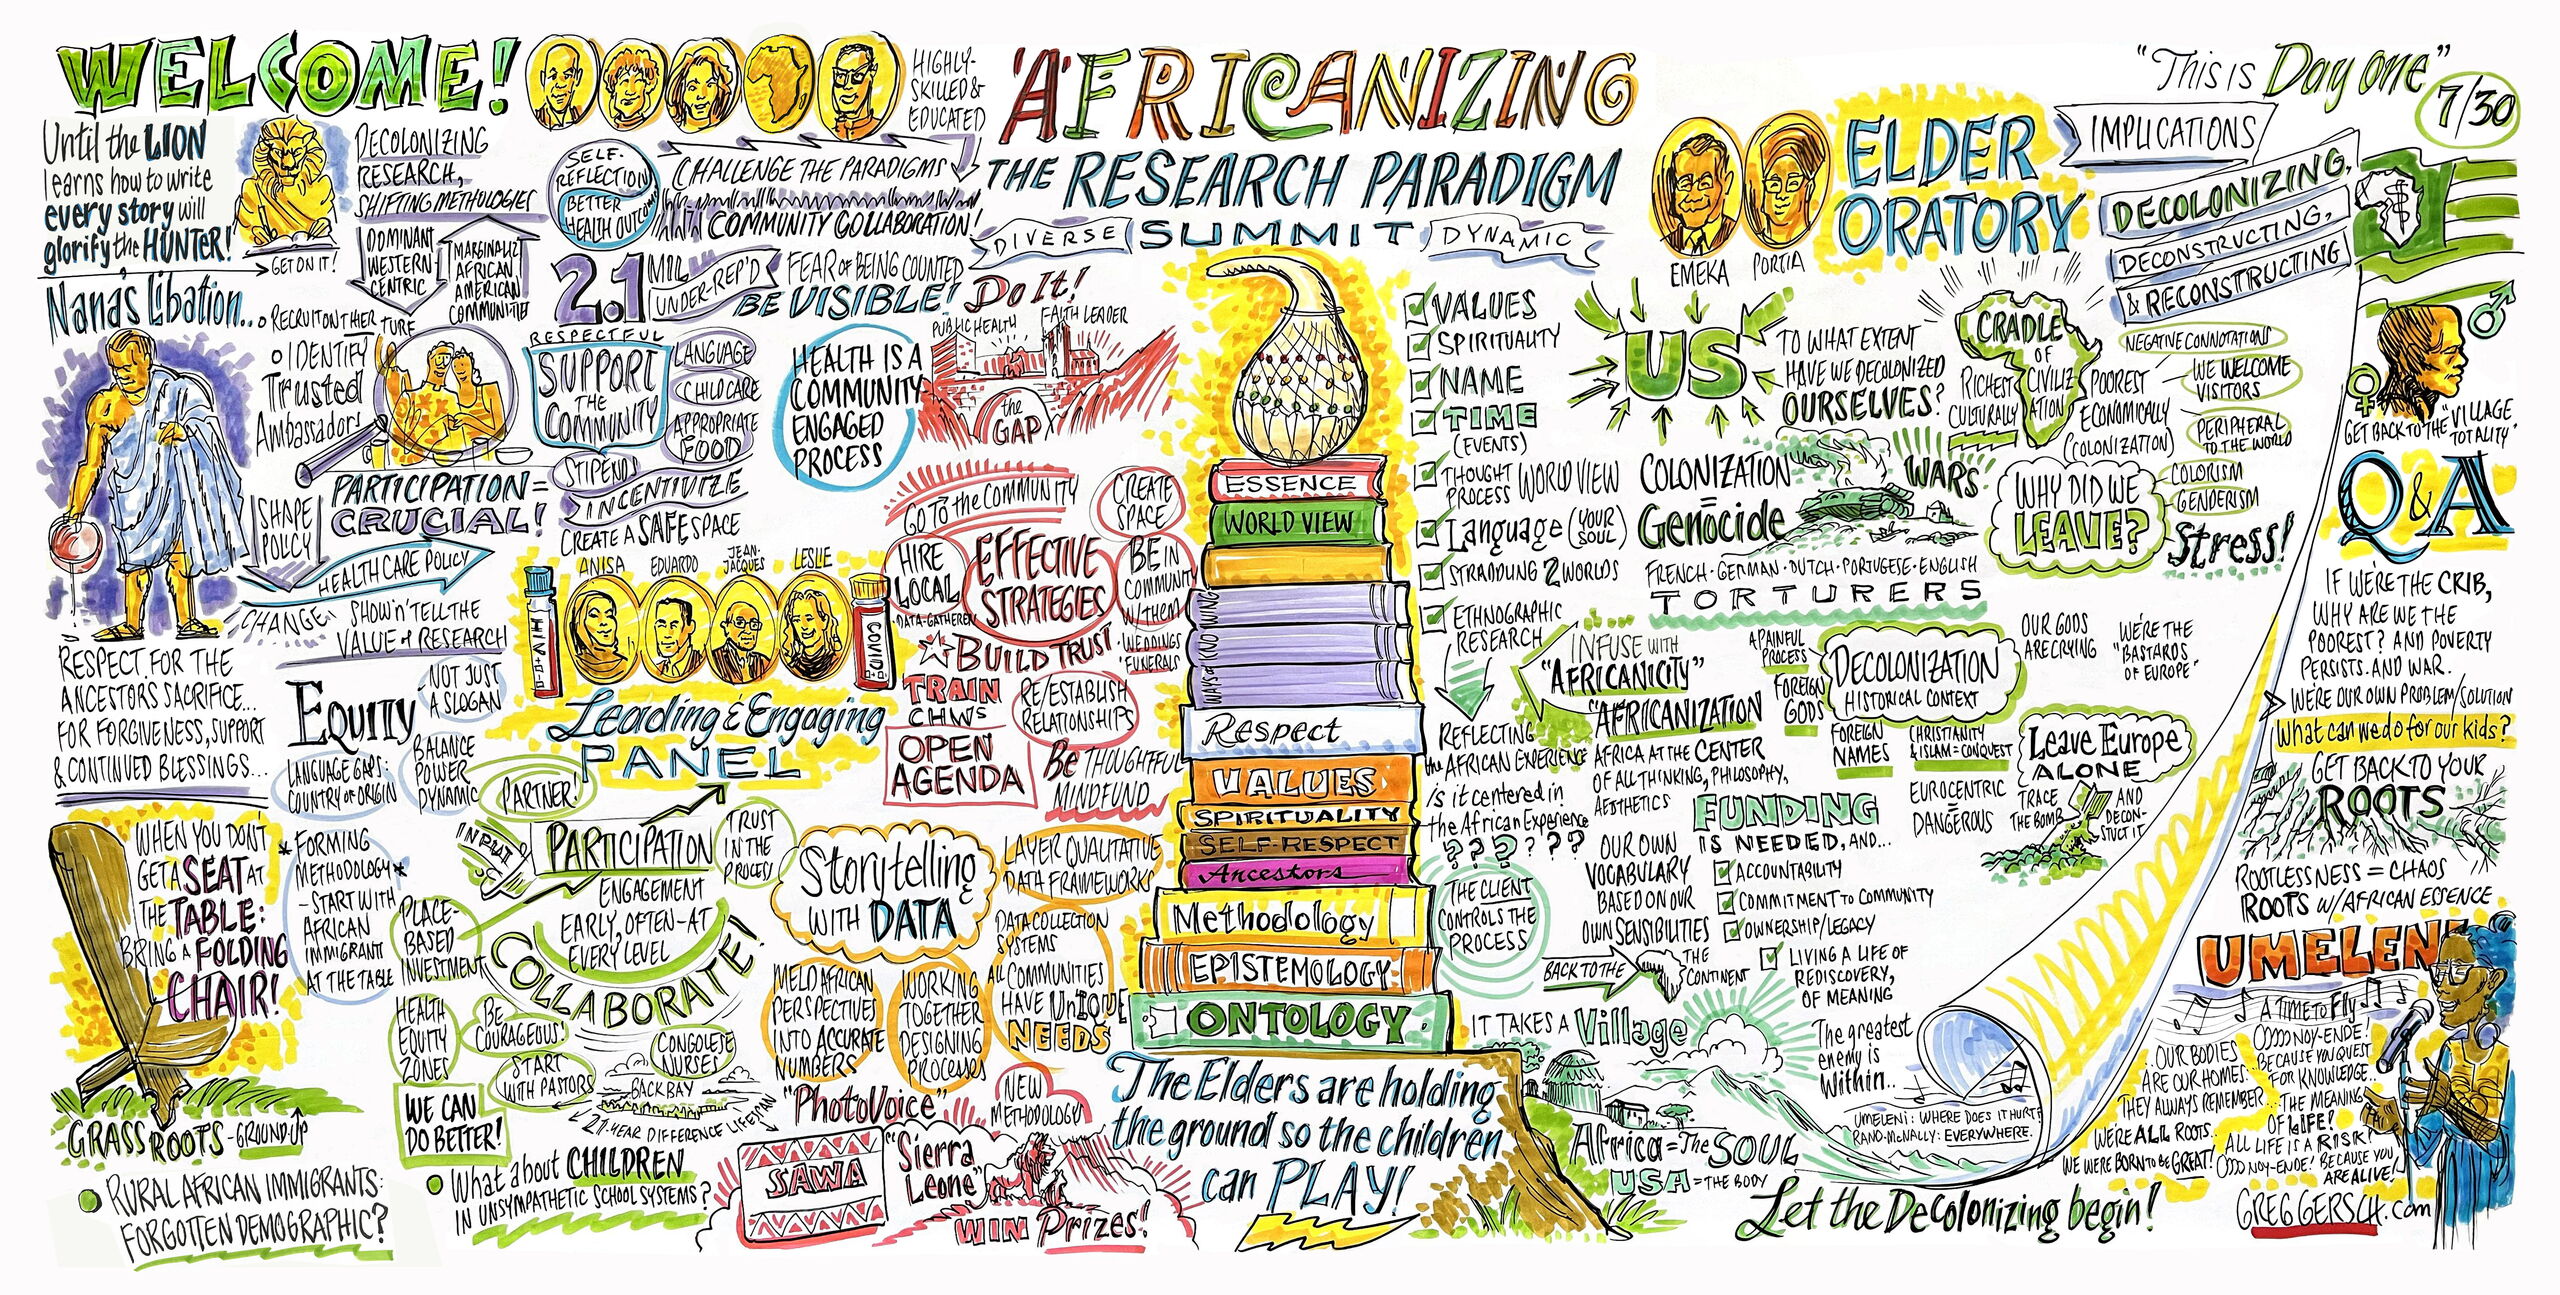 WELCOME!
Until the LION
learns how to write
every story will
glorify the HUNTER!
GET ON IT!
DECOLONIZING
RESEARCH,
SHIFTING METHODOLOGIES
DOMINANT
WESTERN
CENTRIC
AFRICAN
AMERICAN
HIGHLY-
SKILLED &
EDUCATED
SELF-
REFLECTION
BETTER
CHALLENGE THE PARADIGMS
COMMUNITY COLLABORATION!
2.1 MIL
UNDER-REP'D
FEAR OF BEING COUNTED
BE VISIBLE!
Nana's Libation...
RECRUIT ON THEIR TURF
IDENTIFY
Trusted
Ambassadors
PARTICIPATION =
CRUCIAL!
RESPECTFUL
SUPPORT
THE
COMMUNITY
LANGUAGE
CHILD CARE
APPROPRIATE
FOOD
STIPENDS
INCENTIVIZE
CREATE A SAFE SPACE
HEALTH IS A
COMMUNITY
ENGAGED
PROCESS
Do It!
PUBLIC HEALTH
FAITH LEADER
the
GAP
SHAPE
POLICY
HEALTH CARE POLICY
CHANGE
SHOW 'n' TELL THE
VALUE of RESEARCH
RESPECT FOR THE
ANCESTORS SACRIFICE...
FOR FORGIVENESS, SUPPORT
& CONTINUED BLESSINGS...
EQUITY
NOT JUST
A SLOGAN
LANGUAGE GAPS:
COUNTRY OF ORIGIN
BALANCE
POWER
DYNAMIC
ANISA
EDUARDO
JEAN-
JACQUES
LESLIE
HIV
COVID
Leading & Engaging
PANEL
GO TO the COMMUNITY
CREATE
SPACE
HIRE
LOCAL
DATA-GATHERERS
EFFECTIVE
STRATEGIES
BE IN
COMMUNITY
W/THEM
WEDDINGS
FUNERALS
BUILD TRUST
TRAIN
CHWs
RE/ESTABLISH
RELATIONSHIPS
OPEN
AGENDA
Be THOUGHTFUL
WHEN YOU DON'T
GET A SEAT AT
THE TABLE:
BRING A FOLDING
CHAIR!
GRASS ROOTS - GROUND-UP
FORMING
METHODOLOGY
- START WITH
AFRICAN
IMMIGRANTS
AT THE TABLE
PARTNER!
INPUT
PARTICIPATION
TRUST
IN THE
PROCESS
ENGAGEMENT
EARLY, OFTEN - AT
EVERY LEVEL
COLLABORATE!
PLACE-
BASED
INVESTMENT
HEALTH
EQUITY
ZONES
BE
COURAGEOUS!
START
WITH PASTORS
CONGOLESE
NURSES
BACK BAY
YEAR DIFFERENCE LIFESPAN
WE CAN
DO BETTER!
RURAL AFRICAN IMMIGRANTS:
FORGOTTEN DEMOGRAPHIC?
What about CHILDREN
IN UNSYMPATHETIC SCHOOL SYSTEMS?
Storytelling
WITH DATA
LAYER QUALITATIVE
DATA FRAMEWORKS
DATA COLLECTION
SYSTEMS
ALL COMMUNITIES
HAVE UNIQUE
NEEDS
MELD AFRICAN
PERSPECTIVES
INTO ACCURATE
NUMBERS
WORKING
TOGETHER
DESIGNING
PROCESSES
"PHOTOVOICE"
NEW
METHODOLOGY
SAWA
"Sierra
Leone"
WIN Prizes!
'AFRICANIZING
THE RESEARCH PARADIGM
DIVERSE SUMMIT DYNAMIC
ESSENCE
WORLD VIEW
WAYS of KNOWING
Respect
VALUES
SPIRITUALITY
SELF-RESPECT
Ancestors
Methodology
EPISTEMOLOGY
ONTOLOGY
The Elders are holding
the ground so the children
can PLAY!
VALUES
SPIRITUALITY
NAME
TIME
(EVENTS)
THOUGHT
PROCESS WORLD VIEW
Language (YOUR
SOUL)
STRADDLING 2 WORLDS
ETHNOGRAPHIC
RESEARCH
REFLECTING
the AFRICAN EXPERIENCE
is it centered in
the African Experience
? ? ? ? ? ?
THE CLIENT
CONTROLS THE
PROCESS
EMEKA
PORTIA
ELDER
ORATORY
"This is Day one"
7/30
IMPLICATIONS
DECOLONIZING,
DECONSTRUCTING,
& RECONSTRUCTING
US
TO WHAT EXTENT
HAVE WE DECOLONIZED
OURSELVES?
CRADLE
OF
CIVILIZ
ATION
RICHEST
CULTURALLY
POOREST
ECONOMICALLY
(COLONIZATION)
NEGATIVE CONNOTATIONS
WE WELCOME
VISITORS
PERIPHERAL
TO THE WORLD
COLORISM
GENDERISM
COLONIZATION
=
Genocide
WARS
WHY DID WE
LEAVE?
Stress!
FRENCH · GERMAN · DUTCH · PORTUGESE · ENGLISH
TORTURERS
INFUSE WITH
"AFRICANICITY"
"AFRICANIZATION
AFRICA AT THE CENTER
OF ALL THINKING, PHILOSOPHY,
AESTHETICS
A PAINFUL
PROCESS
DECOLONIZATION
HISTORICAL CONTEXT
OUR GODS
ARE CRYING
WE'RE THE
"BASTARDS
OF EUROPE"
FOREIGN
GODS
FOREIGN
NAMES
CHRISTIANITY
& ISLAM = CONQUEST
Leave Europe
ALONE
EUROCENTRIC
=
DANGEROUS
TRACE
THE BOMB
AND
DECON-
STRUCT IT
OUR OWN
VOCABULARY
BASED ON OUR
OWN SENSIBILITIES
FUNDING
IS NEEDED, AND...
ACCOUNTABILITY
COMMITMENT TO COMMUNITY
OWNERSHIP/LEGACY
LIVING A LIFE OF
REDISCOVERY,
OF MEANING
BACK TO THE
THE
CONTINENT
IT TAKES A Village
Africa = The SOUL
USA = THE BODY
The greatest
enemy is
Within...
UMELENI: WHERE DOES IT HURT?
RAND-McNALLY: EVERYWHERE.
Let the Decolonizing begin!
GET BACK TO THE "VILLAGE
TOTALITY"
Q&A
IF WE'RE THE CRIB,
WHY ARE WE THE
POOREST? AND POVERTY
PERSISTS. AND WAR.
WE'RE OUR OWN PROBLEM/SOLUTION
What can we do for our kids?
GET BACK TO YOUR
ROOTS
ROOTLESSNESS = CHAOS
ROOTS W/ AFRICAN ESSENCE
UMELENI
A TIME TO Fly
OOOO NOY-ENDE!
BECAUSE YOU QUEST
FOR KNOWLEDGE...
...THE MEANING
OF LIFE!
ALL LIFE IS A RISK!
OOOO NOY-ENDE! BECAUSE YOU
ARE ALIVE!
...OUR BODIES
ARE OUR HOMES...
THEY ALWAYS REMEMBER...
WE'RE ALL ROOTS...
WE WERE BORN to BE GREAT!
GREGGERSCH.com